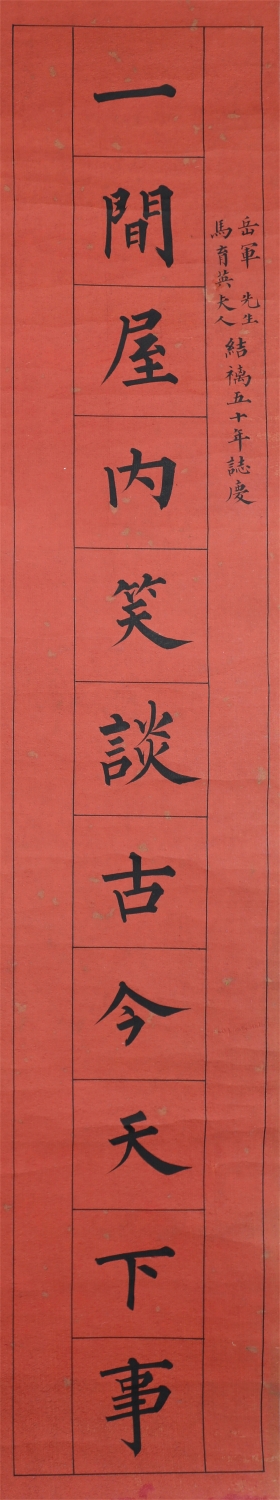 岳軍先生
馬育英夫人
結褵五十年誌慶
一間屋内笑談古今天下事